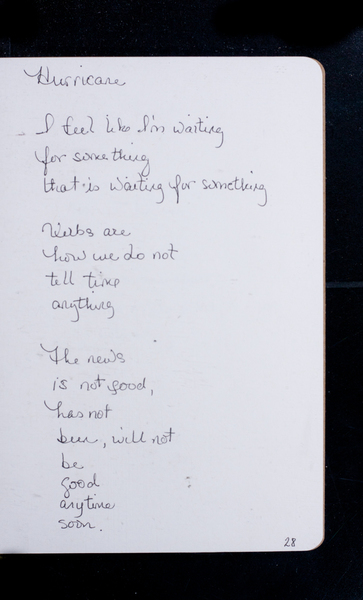 Hurricane
I feel like I'm waiting
for something
that is waiting for something
Verbs are
how we do not
tell time
anything
The news
is not good,
has not
been, will not
be
good
anytime
soon.
28